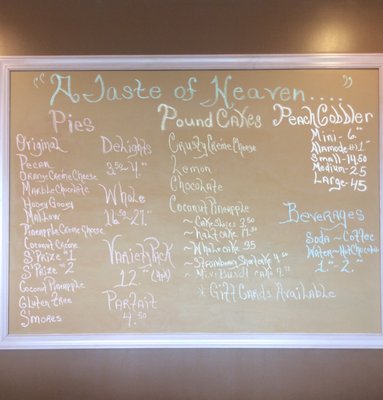 "A Taste of Heaven...."
Pies
Original
Pecan
Orange Creme Cheese
Marble Chocolate
Hooey Gooey
Mallow
Pineapple Creme Cheese
Coconut Creme
S'Prize #1
S'Prize #2
Coconut Pineapple
Gluten Free
S'mores
Delights
3.50 - 4.00
Whole
16.50 - 21.00
Variety Pack
12.00 (4pk)
Parfait
4.50
Pound Cakes
Crusty Creme Cheese
Lemon
Chocolate
Coconut Pineapple
~ Cake Slices 3.50
~ half cake
~ Whole cake 35
~ Strawberry Shortcake 4.50
~ Mini Bundt cake 4.00
* Gift Cards Available
Peach Cobbler
Mini - 6.00
Alamode + $1.00
Small - 14.50
Medium - 25
Large - 45
Beverages
Soda ~ Coffee
Water ~ Hot Chocolate
1.00 - 2.00